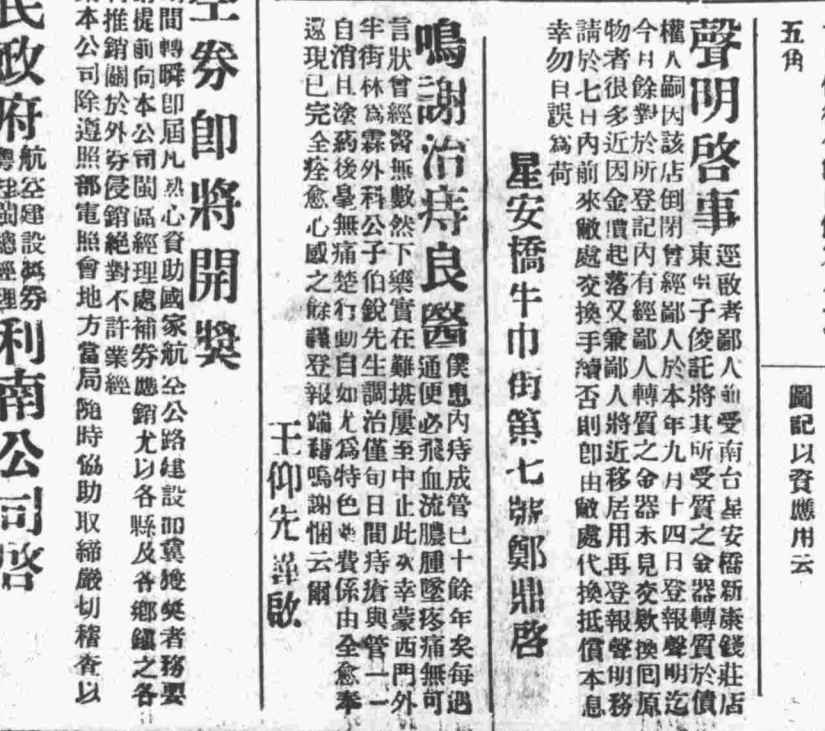 五角
圖記以資應用云
聲明啓事
逕啟者鄙人前受南台星安橋新康錢莊店
東 子俊託將其所受質之金器轉質於債
權人嗣因該店倒閉曾經鄙人於本年九月十四日登報聲明迄
今月餘對於所登記內有經鄙人轉質之金器未見交欵換囘原
物者很多近因金價起落又兼鄙人將近移居用再登報聲明務
請於七日內前來敝處交換手續否則卽由敝處代換抵償本息
幸勿自誤爲荷
星安橋牛巾街第七號鄭鼎啓
鳴謝治痔良醫
僕患內痔成管已十餘年矣每遇
通便必飛血流膿腫墜疼痛無可
言狀曾經醫無數然下藥實在難堪屢至中止此次幸蒙西門外
半街林爲霖外科公子伯銳先生調治僅旬日間痔瘡與管一一
自消且塗藥後毫無痛楚行動自如尤爲特色 費係由全愈奉
還現已完全痊愈心感之餘謹登報端藉鳴謝悃云爾
王仰先謹啟
空券卽將開獎
期間轉瞬卽屆凡熱心資助國家航空公路建設而冀獲奬者務要
提前向本公司閩區經理處補券應銷尤以各縣及各鄉鎭之各
推銷關於外券侵銷絕對不許業經
本公司除遵照部電照會地方當局隨時協助取締嚴切稽查以
民政府
航空建設奬券
粵桂閩總經理
利南公司啓